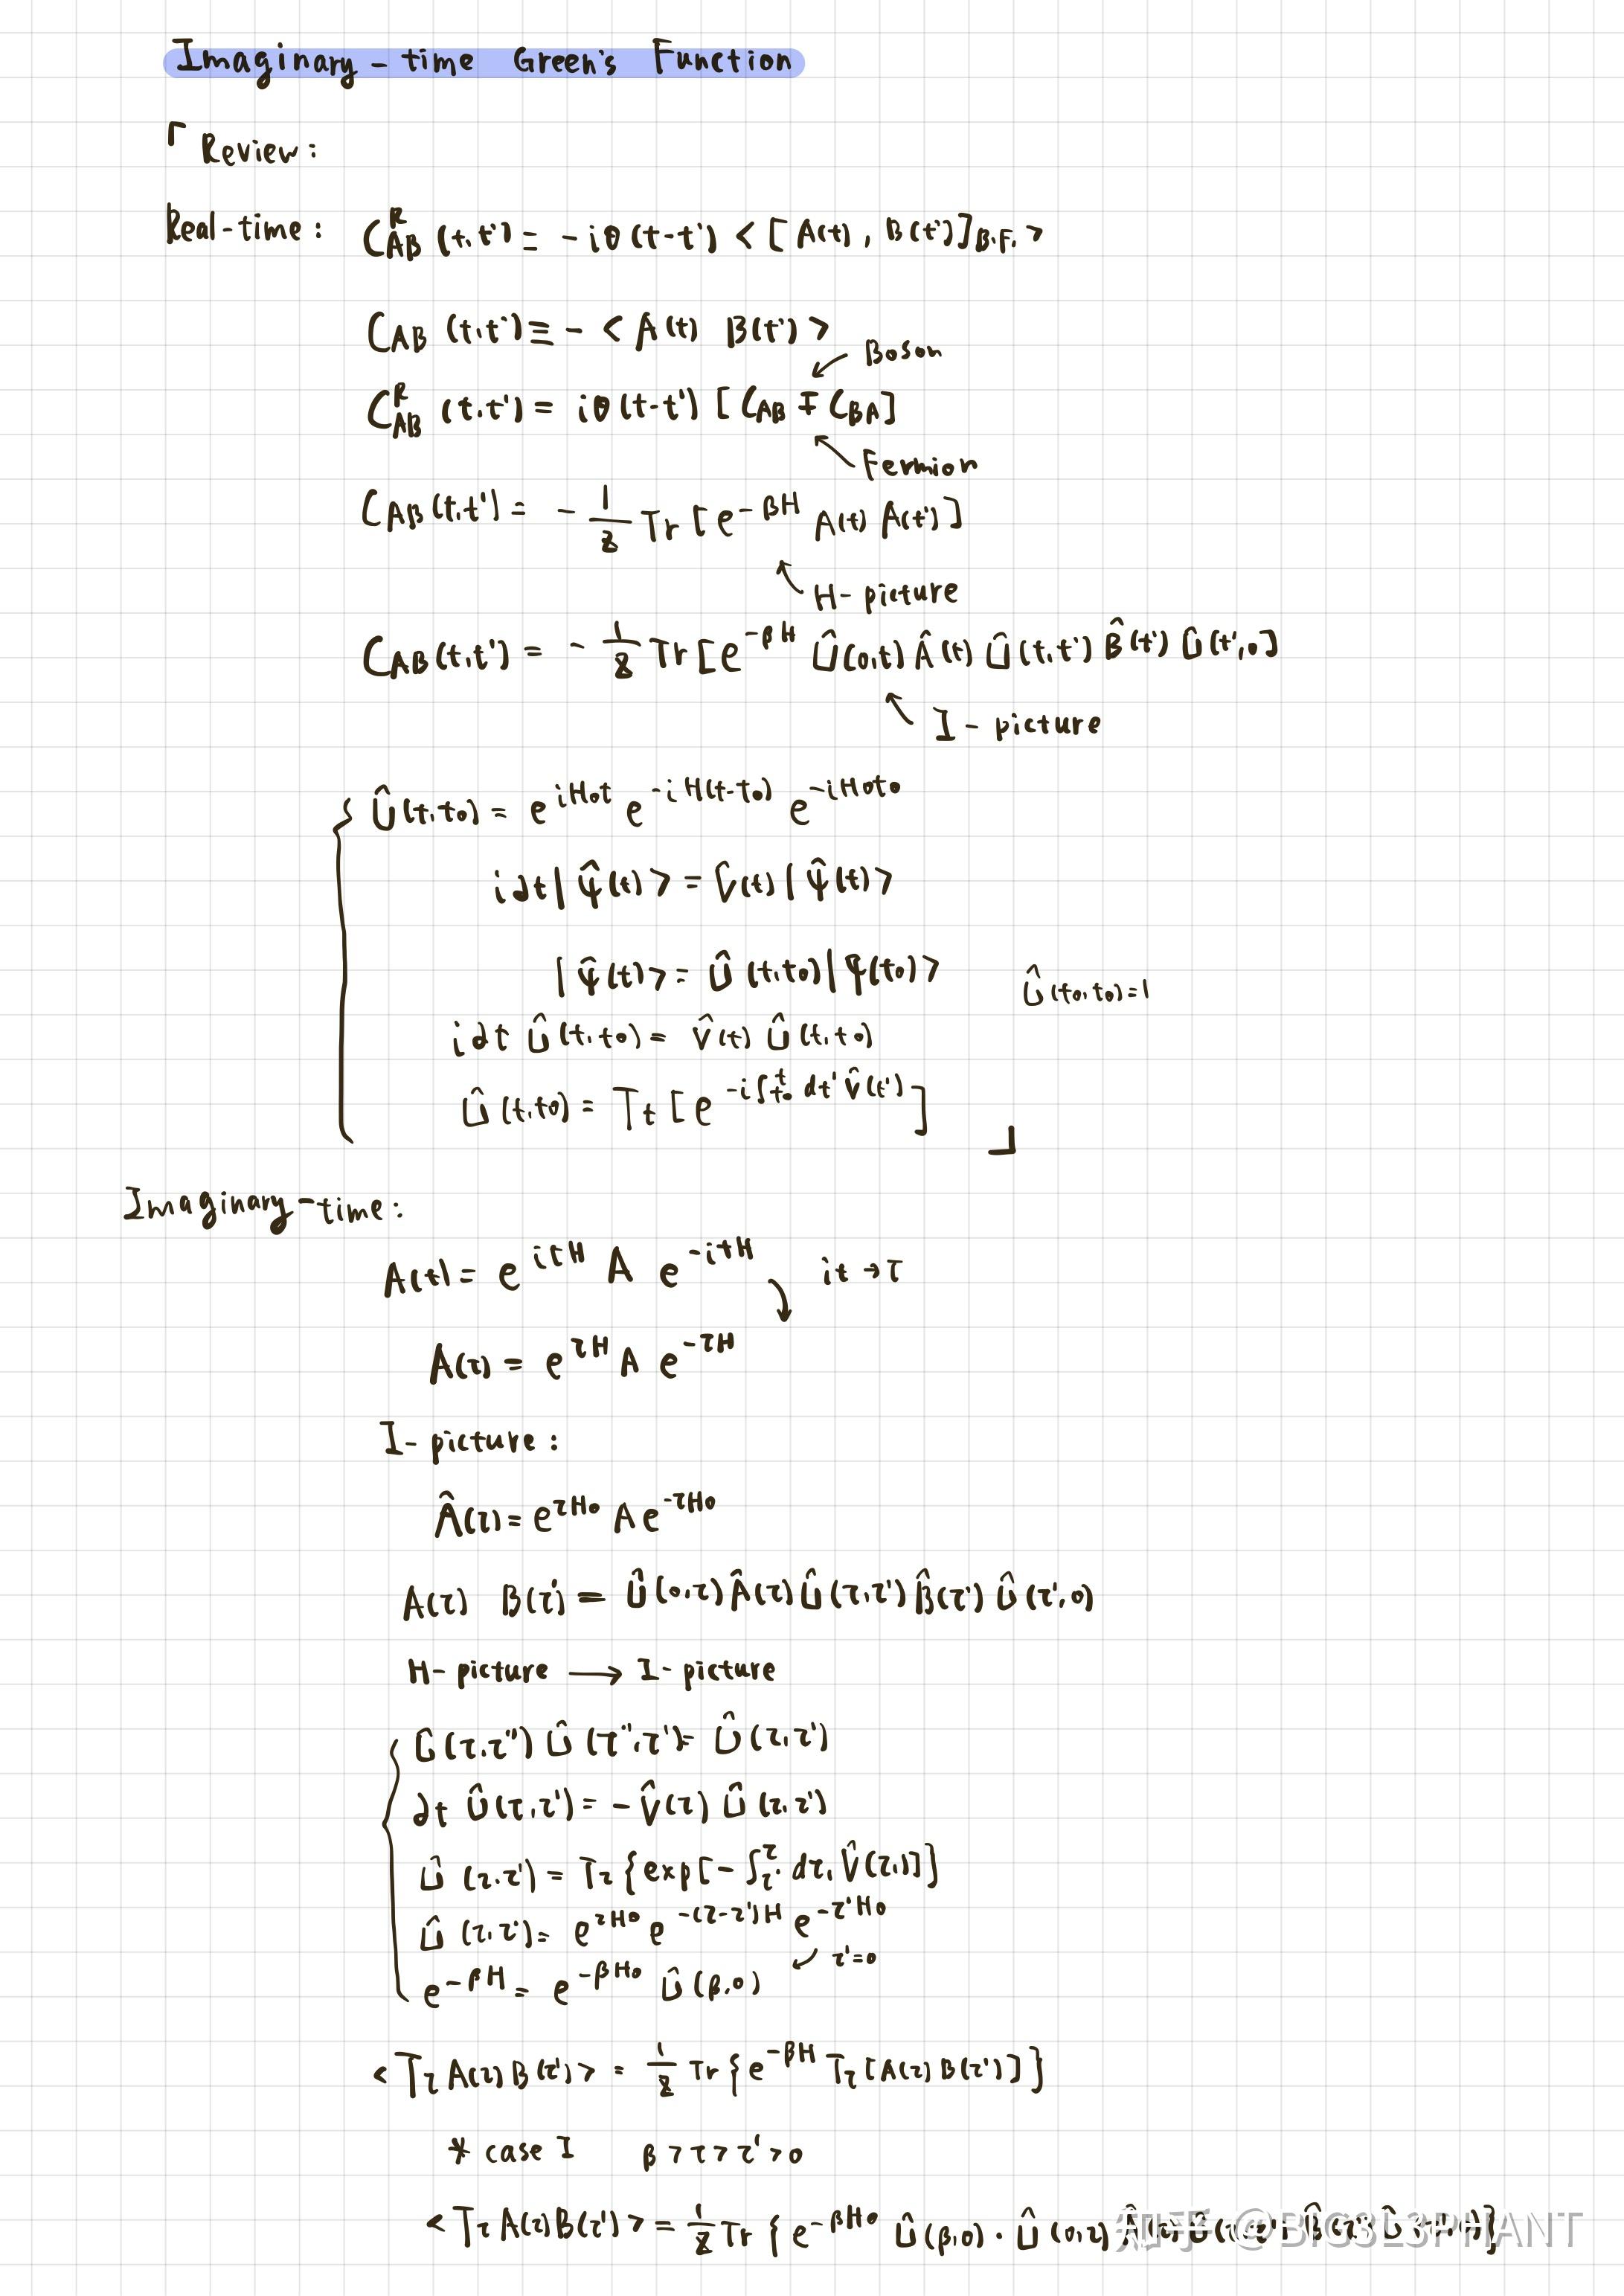 Imaginary-time Green's Function
「 Review:
Real-time: C^R_AB (t,t') = -iθ(t-t') <[A(t), B(t')]_B.F.>
C_AB (t,t') ≡ - <A(t) B(t')>
Boson
C^R_AB (t,t') = iθ(t-t') [C_AB ∓ C_BA]
Fermion
C_AB(t,t') = - 1/Z Tr[e^{-βH} A(t) A(t')]
H-picture
C_AB(t,t') = - 1/Z Tr[e^{-βH} Û(0,t) Â(t) Û(t,t') B̂(t') Û(t',0]
I-picture
Û(t,t0) = e^{iH0t} e^{-iH(t-t0)} e^{-iH0t0}
i∂t|ψ̂(t)> = V̂(t)|ψ̂(t)>
|ψ̂(t)> = Û(t,t0)|ψ(t0)> Û(t0,t0)=1
i∂t Û(t,t0) = V̂(t) Û(t,t0)
Û(t,t0) = Tt [e^{-i∫_{t0}^{t} dt' V̂(t')}] 」
Imaginary-time:
A(t) = e^{itH} A e^{-itH} it→τ
A(τ) = e^{τH} A e^{-τH}
I-picture:
Â(τ) = e^{τH0} A e^{-τH0}
A(τ) B(τ') = Û(0,τ) Â(τ) Û(τ,τ') B̂(τ') Û(τ',0)
H-picture → I-picture
Û(τ,τ'') Û(τ'',τ') = Û(τ,τ')
∂t Û(τ,τ') = -V̂(τ) Û(τ,τ')
Û(τ,τ') = Tτ{exp[-∫_{τ'}^{τ} dτ1 V̂(τ1)]}
Û(τ,τ') = e^{τH0} e^{-(τ-τ')H} e^{-τ'H0}
τ'=0
e^{-βH} = e^{-βH0} Û(β,0)
<Tτ A(τ)B(τ')> = 1/Z Tr{e^{-βH} Tτ[A(τ)B(τ')]}
* case I β>τ>τ'>0
<Tτ A(τ)B(τ')> = 1/Z Tr{e^{-βH0} Û(β,0)·Û(0,τ) Â(τ) Û(τ,τ') B̂(τ') Û(τ',0)}
知乎 @BIG3L3PHANT